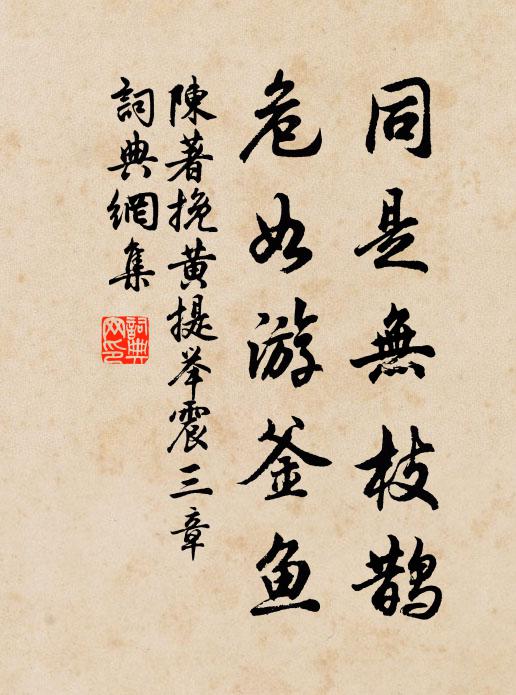 同是無枝鵲
危如游釜鱼
陳著挽黄提举震三章
詞典網集
詞典
网印